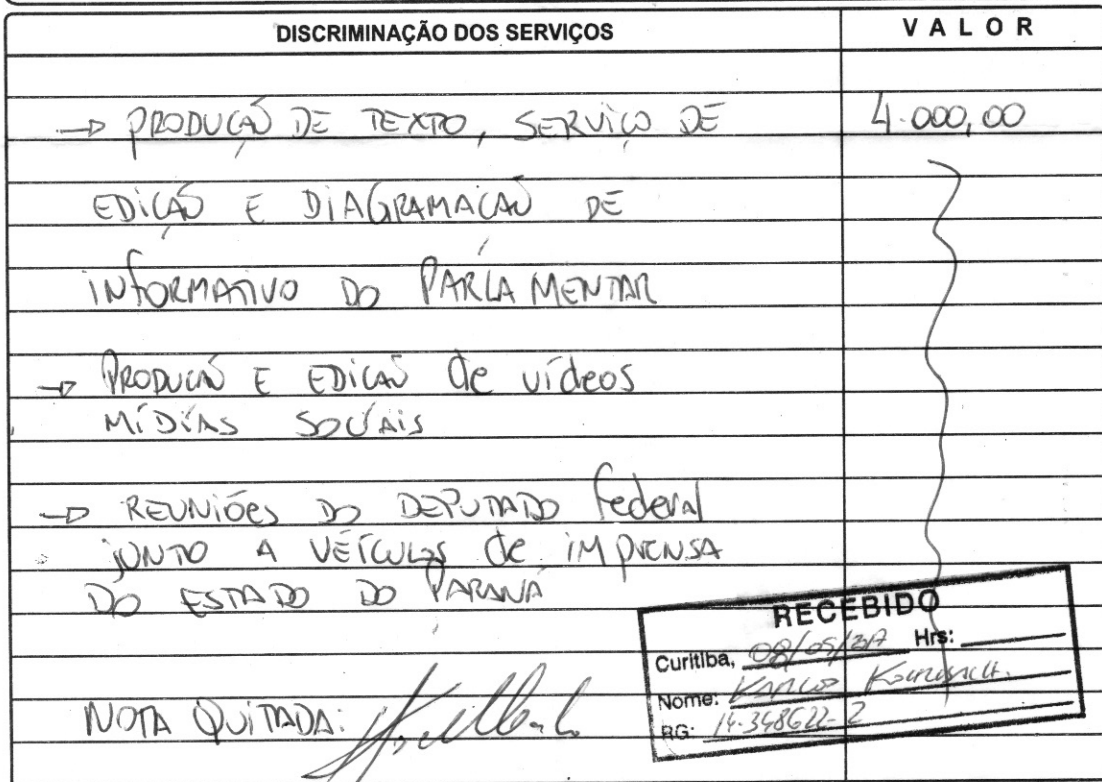 DISCRIMINAÇÃO DOS SERVIÇOS VALOR
→ PRODUÇÃO DE TEXTO, SERVIÇO DE 4.000,00
EDIÇÃO E DIAGRAMAÇÃO DE
INFORMATIVO DO PARLAMENTAR
→ PRODUÇÃO E EDIÇÃO de vídeos
MÍDIAS SOCIAIS
→ REUNIÕES DO DEPUTADO federal
JUNTO A VEÍCULOS de IMPRENSA
DO ESTADO DO PARANÁ
RECEBIDO
Curitiba, 08/05/ Hrs:
Nome:
RG: 14-348622-2
NOTA QUITADA: